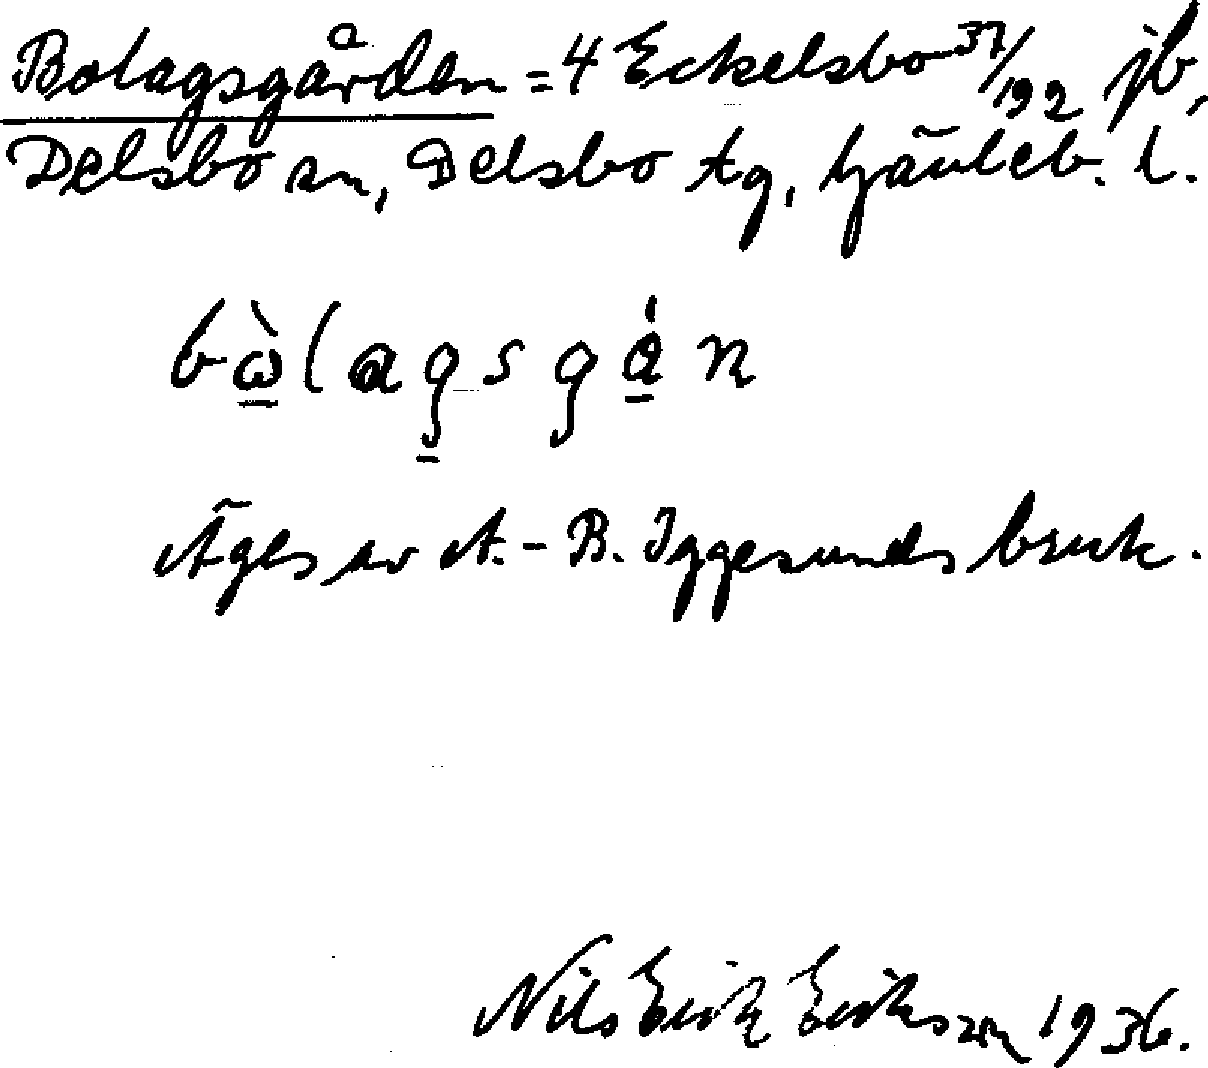 Bolagsgården = 4 Eckelsbo 37/192 jb,
Delsbo sn, Delsbo tg, Gävleb. l.
bὼ̲lag̲sgǻ̲n
Äges av A.-B. Iggesunds bruk.
Nils Erik Eriksson 1936.